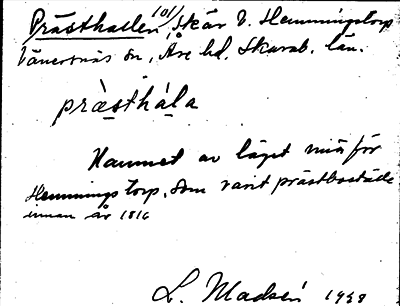 Prästhallen, 101/ skär V. Hemmingstorp
Vänersnäs sn, Åse hd, Skarab. län.
prästhála
Namnet av läget mitt för
Hemmingstorp, som varit prästbostäde
innan år 1816
L. Madsén 1938